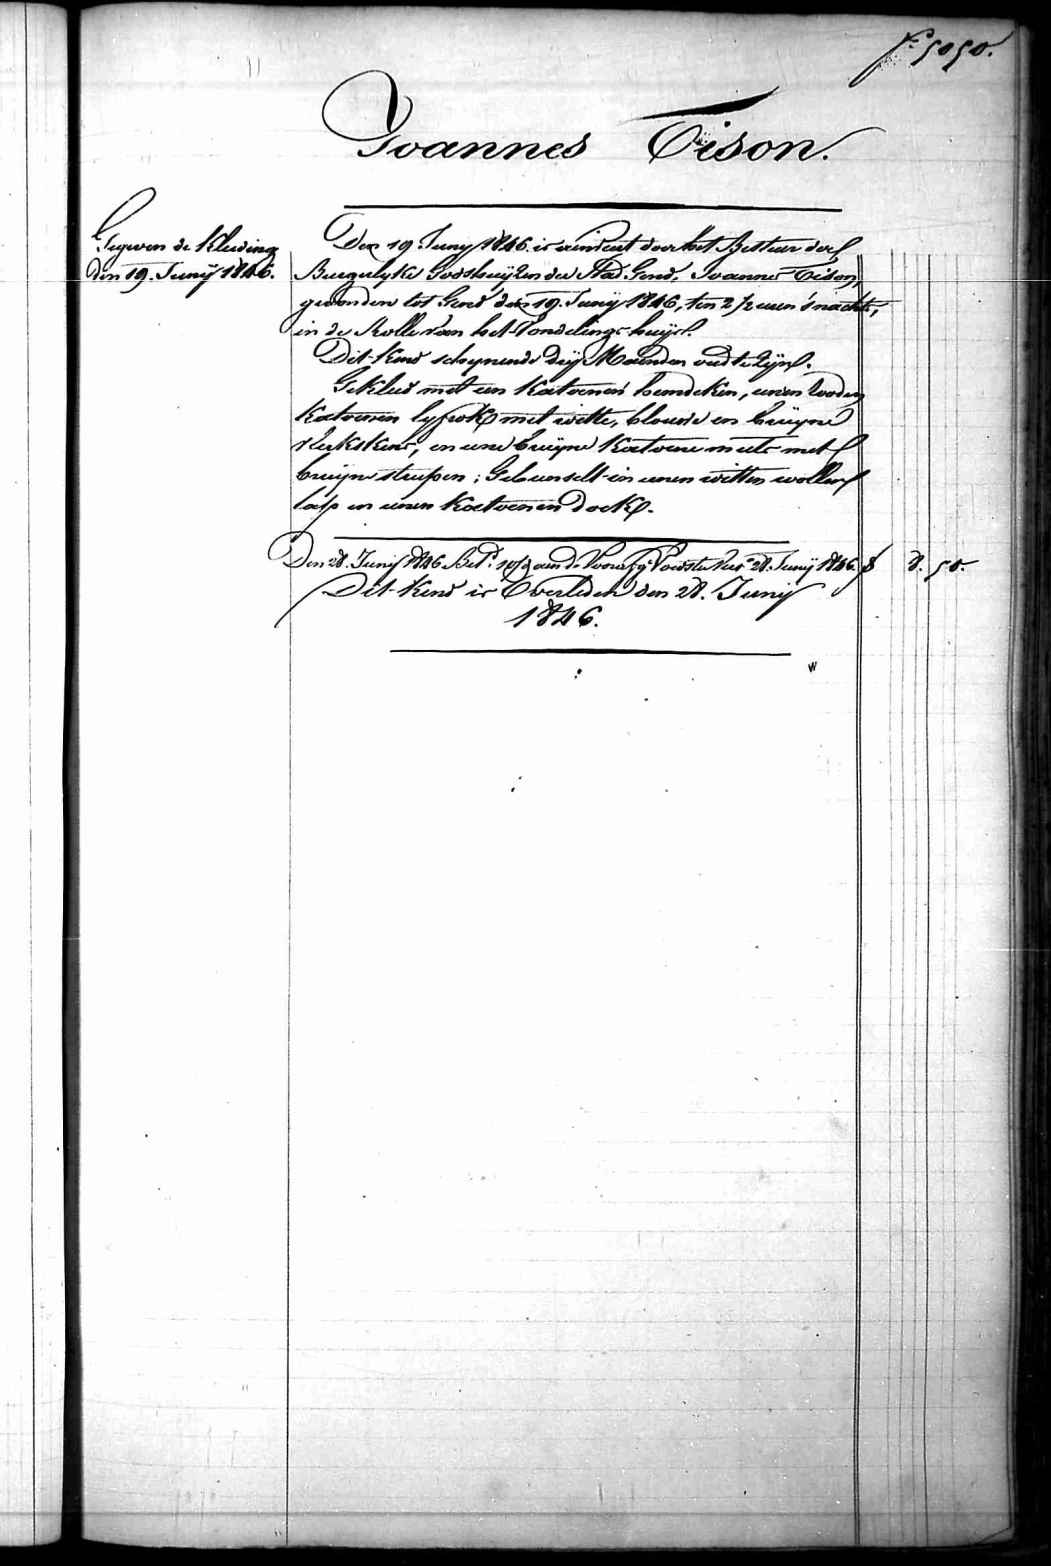 fo 5050.
Joannes Tison.
Gegeven de Kleeding
den 19. Junij 1846.
Den 19. Juny 1846. is aenveert door het Bestuer der
Burgelyke Godshuijzen der Stad Gend, Joannes Tison,
gevonden tot Gend den 19. Junij 1846, ten 2 1/2 uren 's nachts,
in de Rolle van het Vondelings-huijs.
Dit Kind schynende drij Maenden oud te Zijn.
Gekleed met een Katoenen hemdeken, eenen rooden
Katoenen lyfrok met witte, blauwe en bruyne
vlekskens, en eene bruyne Katoene muts met
bruyne streepen; Gebunselt in eenen witten wollen
lap en eenen Katoenen doek.
Den 28. Junij 1846 Bet. aan de Voedster 28. Junij 1846. f 8. 50.
Dit Kind is Overleden den 28. Junij
1846.